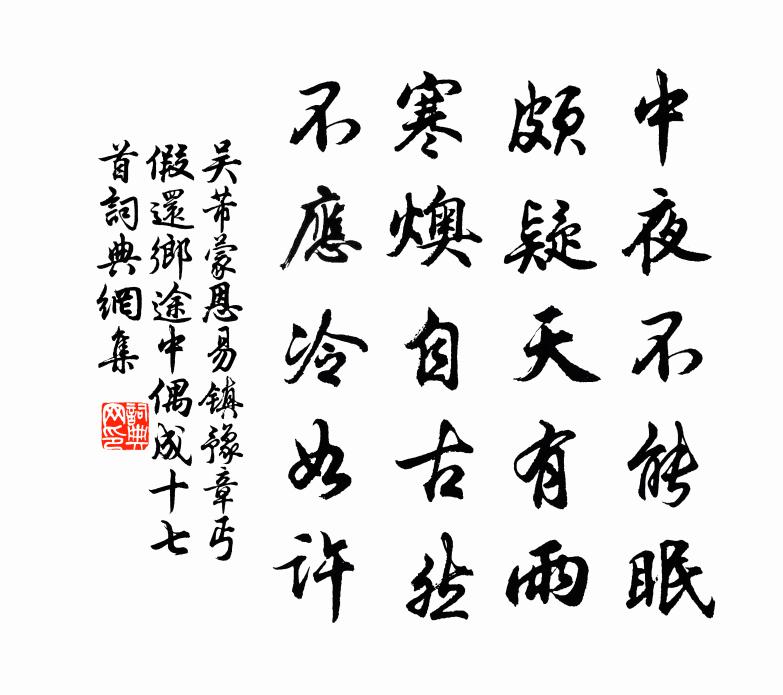 中夜不能眠
頗疑天有雨
寒燠自古然
不應冷如許
吴芾蒙恩易鎮豫章丐
假還鄉途中偶成十七
首詞典網集
詞典
网印